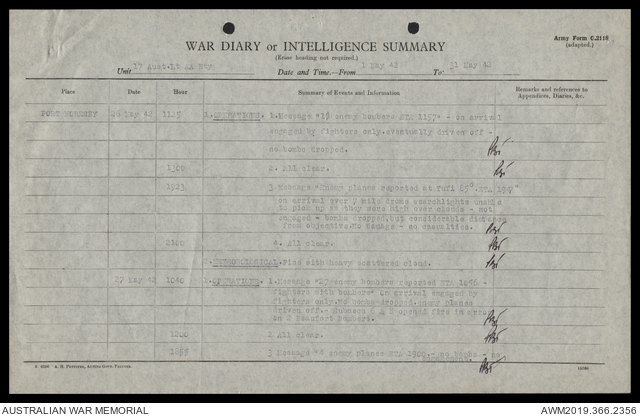 Army Form C.2118
(adapted.)
WAR DIARY or INTELLIGENCE SUMMARY
(Erase heading not required.)
Unit 17 Aust.Lt AA Bty. Date and Time.—From 1 May 42 To: 31 May 42
Place Date Hour Summary of Events and Information Remarks and references to
Appendices, Diaries, &c.
PORT MORESBY 26 May 42 1125 1.OPERATIONS. 1.Message "18 enemy bombers ETA 1157" - on arrival
engaged by fighters only, eventually driven off -
no bombs dropped.
1300 2. All clear.
1923 3.Message "Enemy planes reported at Yuli 65° ETA
on arrival over 7 mile drome searchlights unable
to pick up as they were high over clouds - not
engaged - bombs dropped, but considerable distance
from objective. No damage - no casualties.
2100 4. All clear.
2. METEOROLOGICAL. Fine with heavy scattered cloud.
27 May 42 1040 1.OPERATIONS. 1.Message "27 enemy bombers reported ETA 1056 -
fighters with bombers" On arrival engaged by
fighters only. No bombs dropped, enemy planes
driven off. - Subsecs & opened fire in error
on 2 Beaufort bombers.
1200 2 All clear.
1855 3 Message enemy planes ETA 1900. - no bombs - no
A. H. PETTIFER, ACTING GOVT. PRINTER.
AUSTRALIAN WAR MEMORIAL AWM2019.366.2356